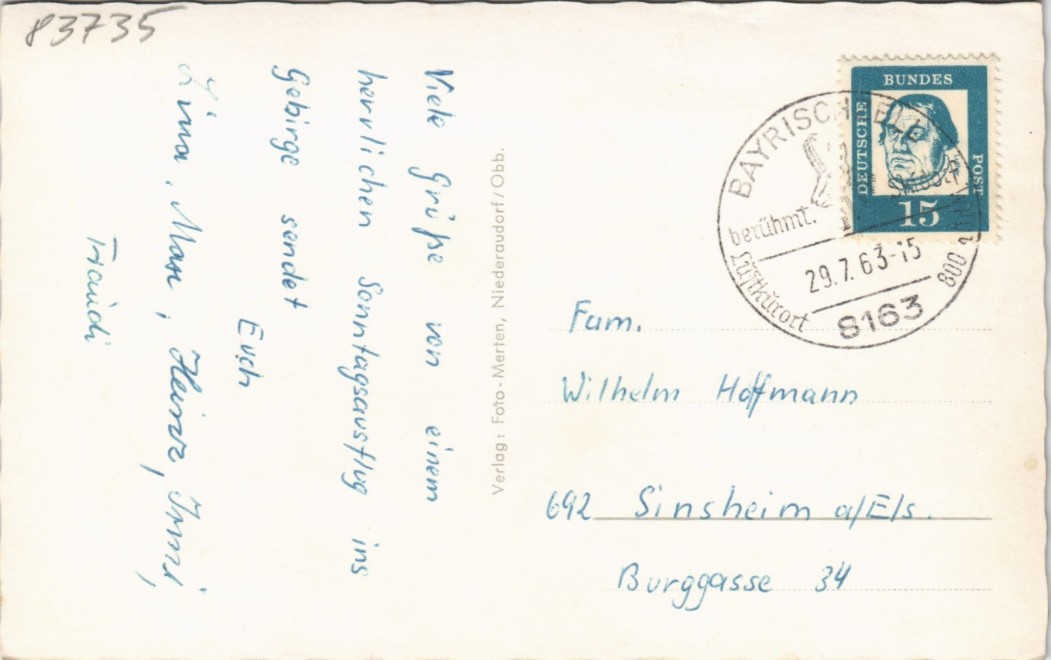 83735
Viele Grüße von einem
herrlichen Sonntagsausflug ins
Gebirge sendet
Euch
Lina, Max, Heinz, Irmi,
Traudi
Verlag: Foto-Merten, Niederaudorf/Obb.
DEUTSCHE BUNDES POST
15
BAYRISCHZELL
berühmt. Skidorf
Luftkurort 800
29.7.63-15
8163
Fam.
Wilhelm Hoffmann
692 Sinsheim a/Els.
Burggasse 34